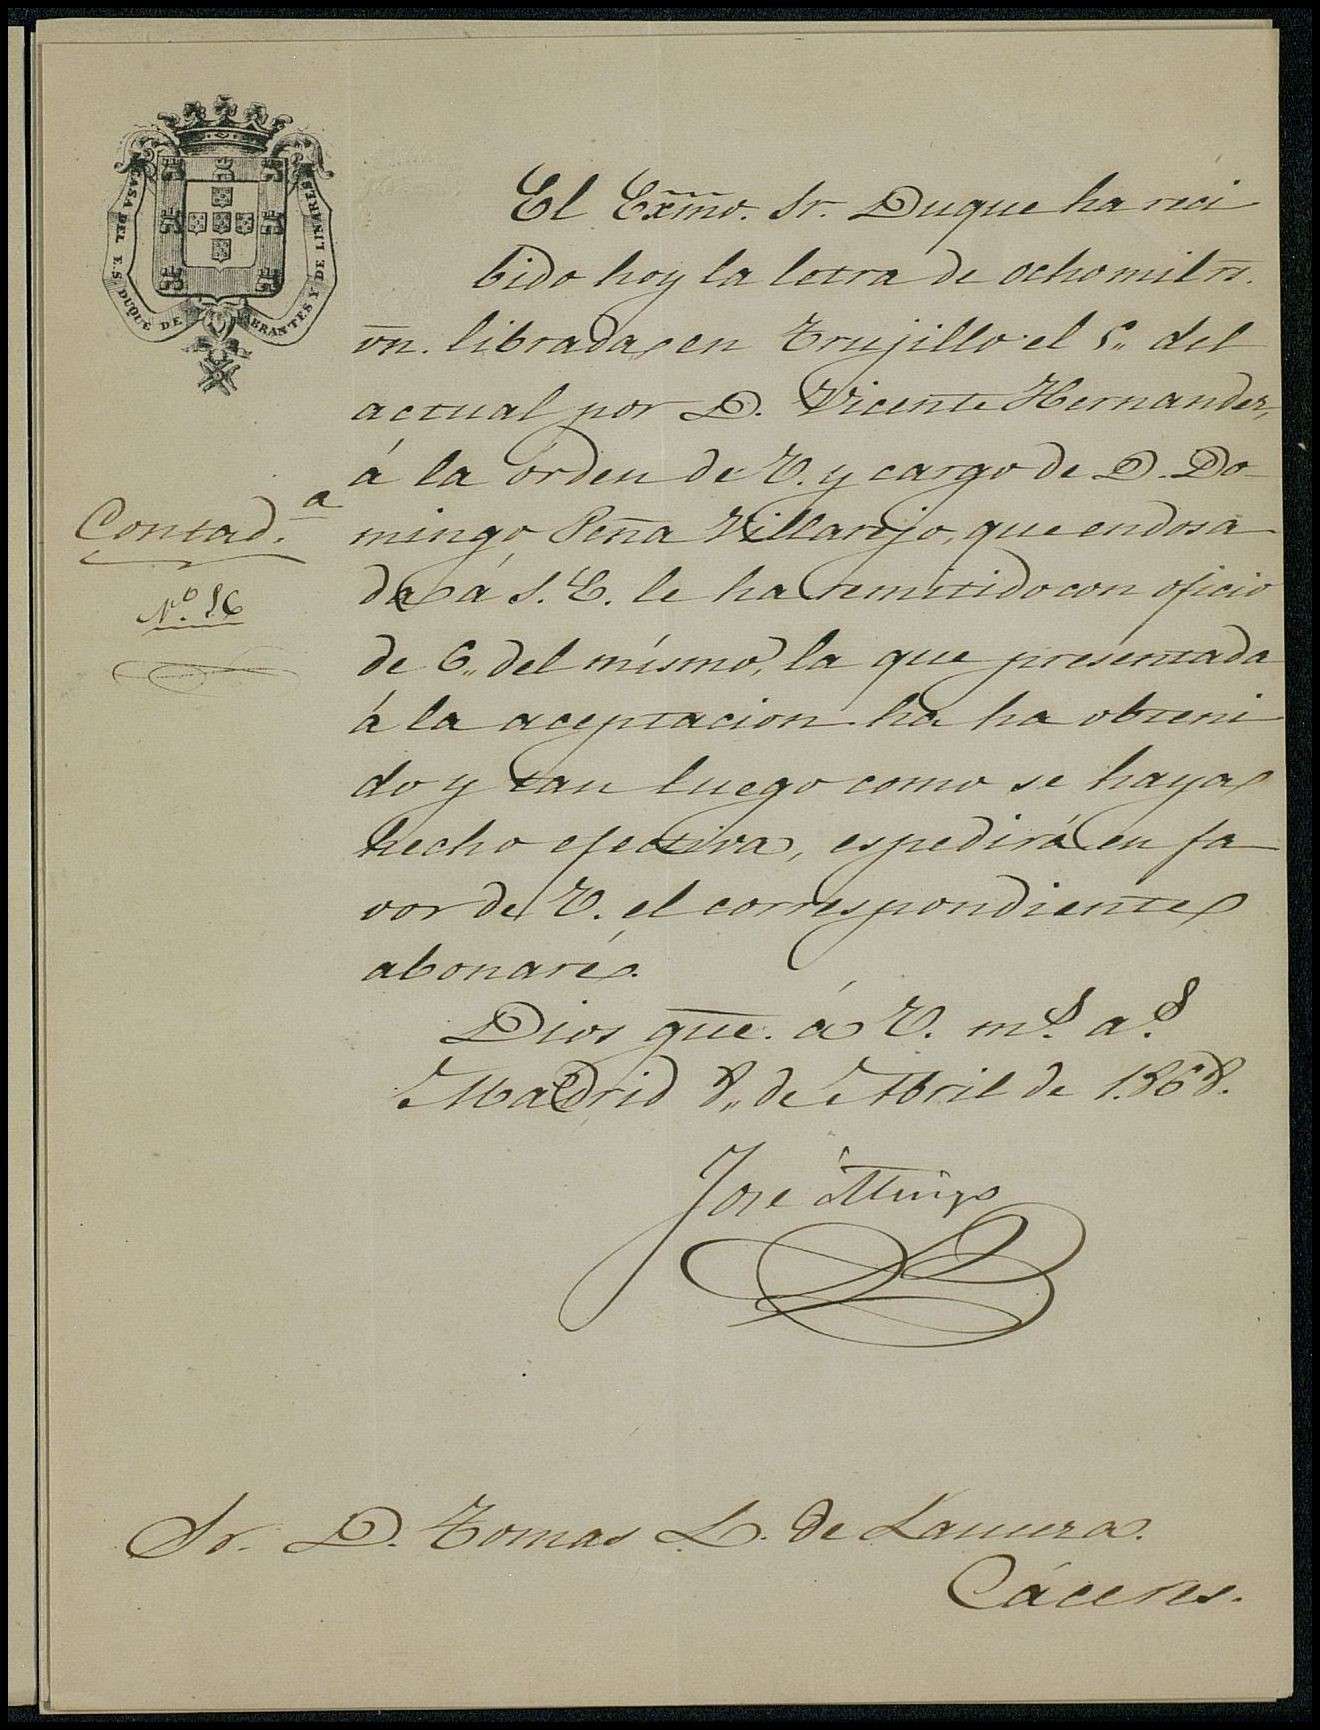 CASA DEL E.S. DUQUE DE ABRANTES Y DE LINARES
El Exmo. Sr. Duque ha reci
bido hoy la letra de ocho mil rs.
vn. librada en Trujillo el 5,, del
actual por D. Vicente Hernandez,
á la órden de V. y cargo de D. Do-
mingo Peña Villarejo, que endosa
da á S. E. le ha remitido con oficio
de 6,, del mismo, la que presentada
á la aceptacion ha ha obteni
do y tan luego como se haya
hecho efectiva, espedirá en fa
vor de V. el correspondiente
abonaré.
Dios gue. á V. ms. as.
Madrid 8,, de Abril de 1.868.
José Mingo
Contad.a
No. 86
Sr. D. Tomas L. de
Cáceres.